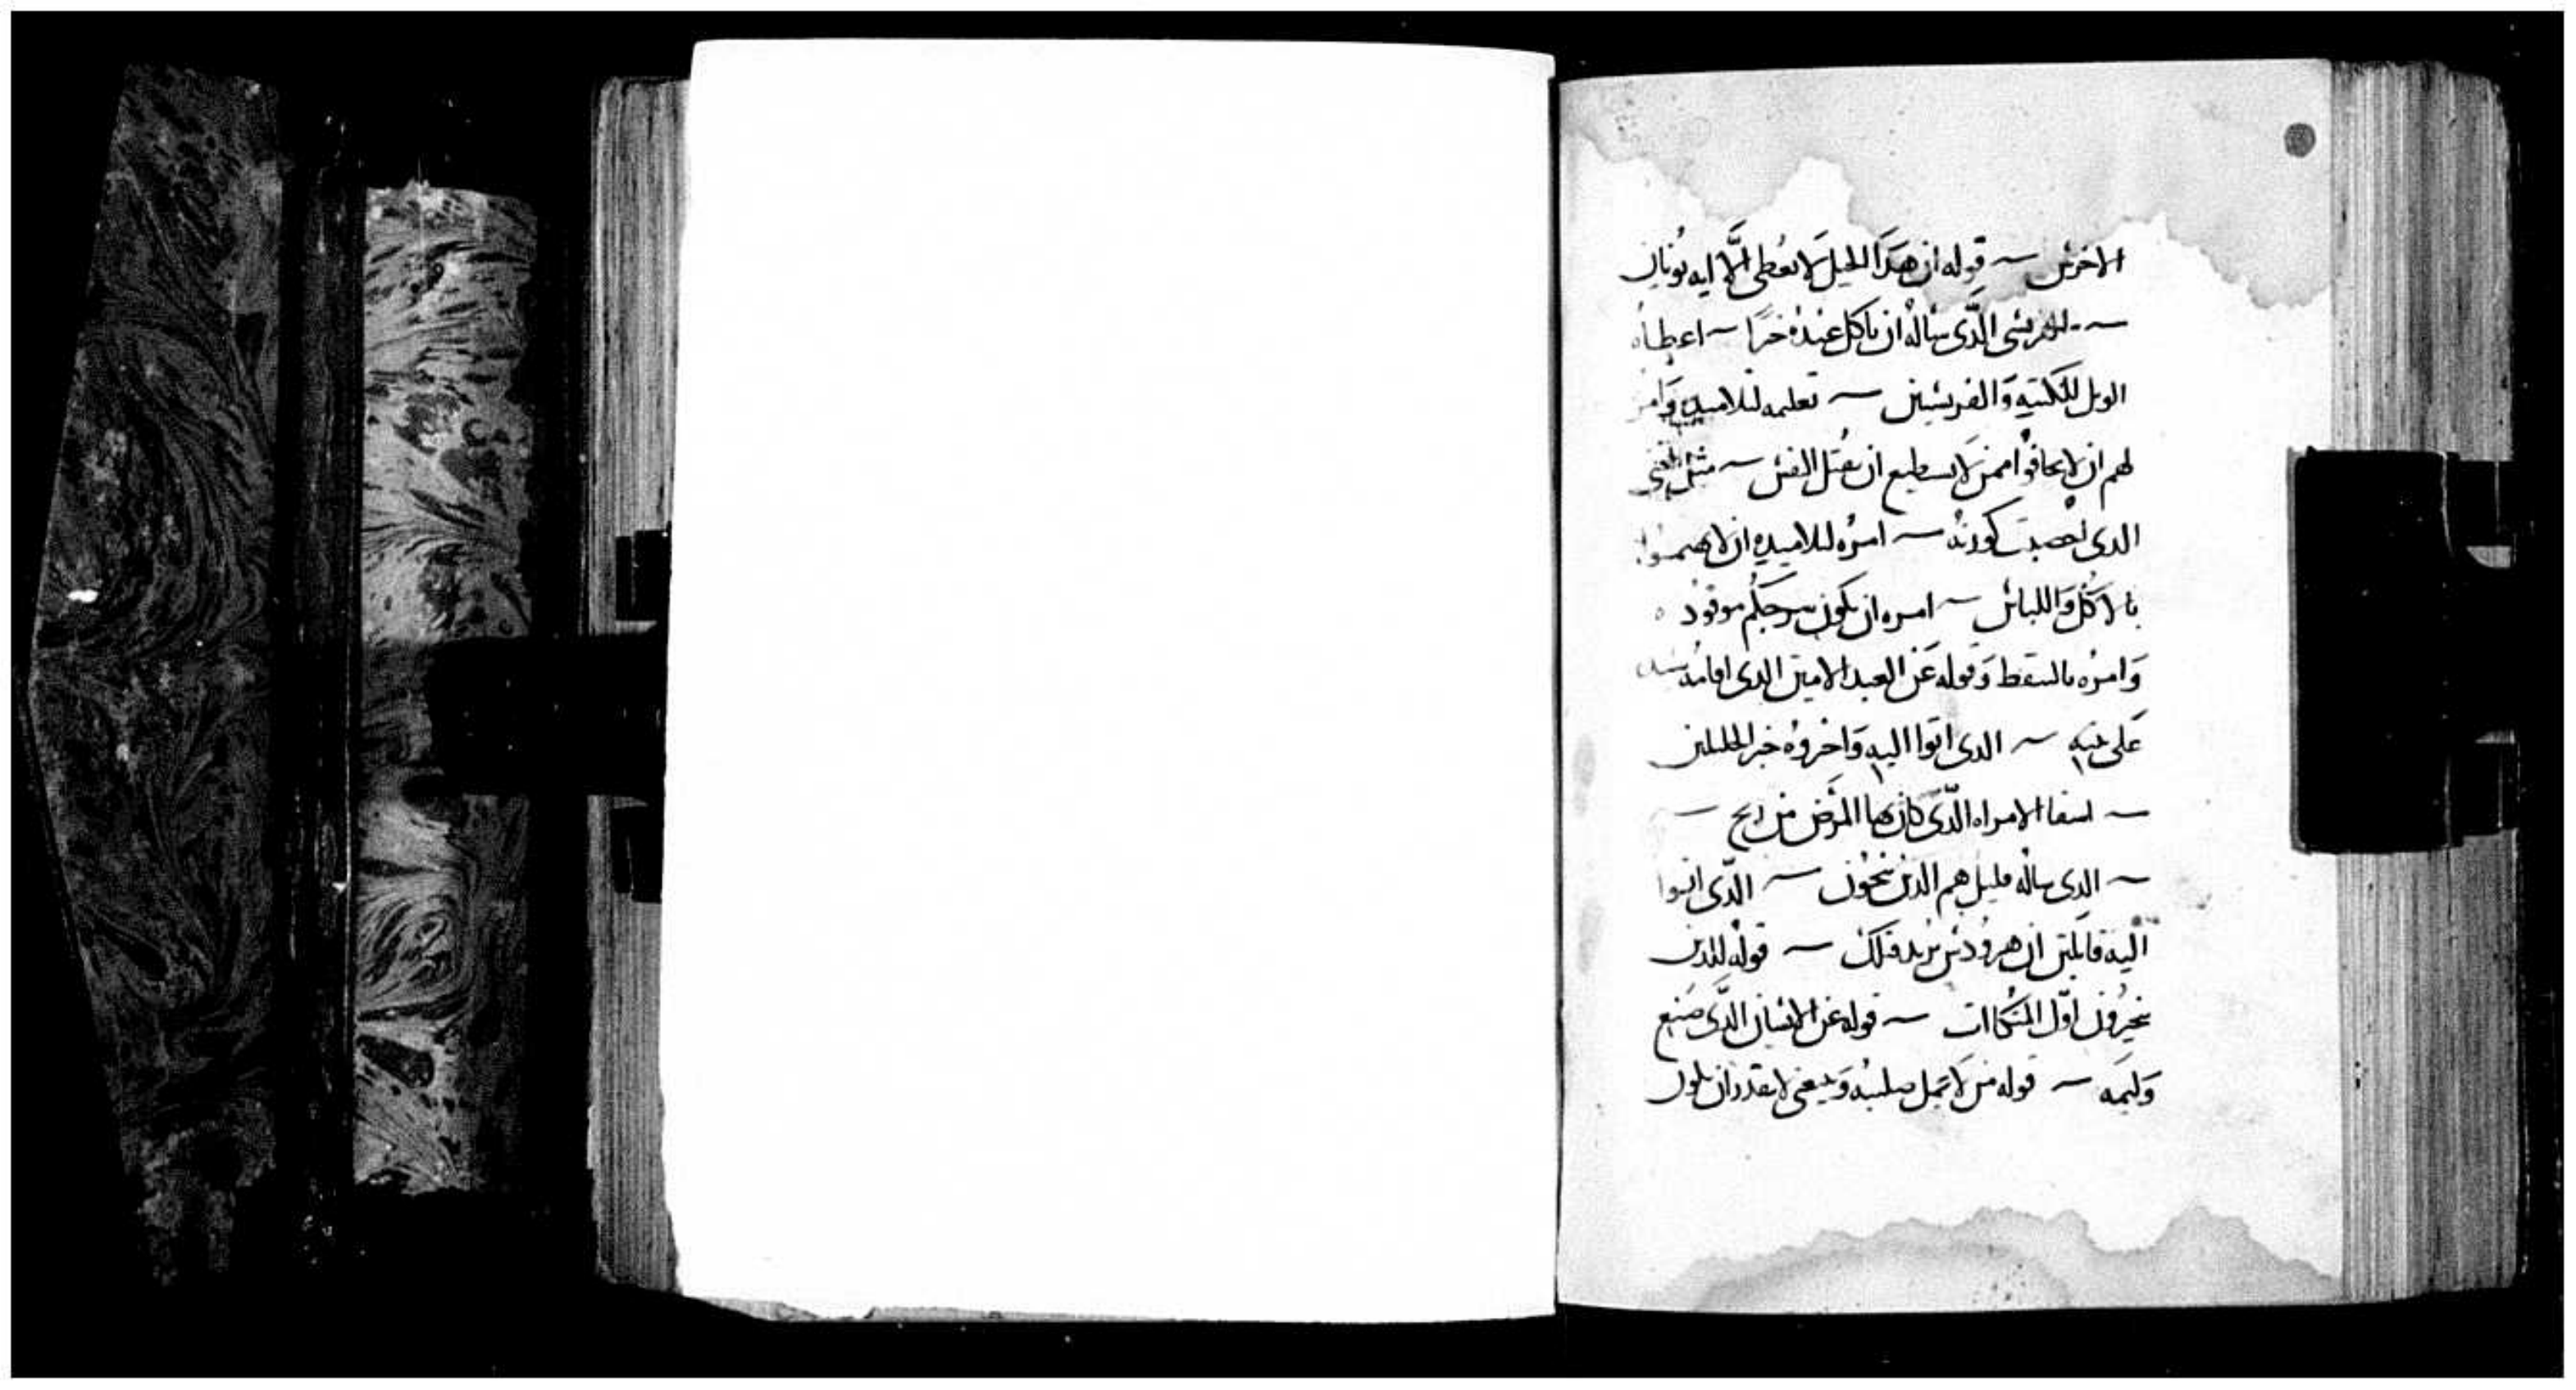 الاخرس ~ قوله ان هدا الجيل لا يعطى الا ايه يونان
~ الفريسى الدى ساله ان ياكل عنده خبزا ~ اعطاه
الويل للكتبه والفريسين ~ تعليمه لتلاميده وامر
لهم ان لا يخافوا ممن لا يستطيع ان يقتل النفس ~ مثل الغنى
الدى اخصبت كورته ~ امره لتلاميده ان لا يهتموا
بالاكل واللباس ~ امره ان يكون سرجكم موقود ه
وامره بالتيقظ وقوله عن العبد الامين الدى اقامه سيده
على ~ الدى اتوا اليه واخبروه خبر الجليلين
~ اشفا الامراه الدى كان بها المرض من ريح ~
~ الدى ساله قليل هم الدين ينجون ~ الدى اتوا
اليه قايلين ان هرودس يريد قتلك ~ قوله للدين
يتخيرون اول المتكاات ~ قوله عن الانسان الدى صنع
وليمه ~ قوله من لا يحمل صليبه ويتبعنى لا يقدر ان يكون